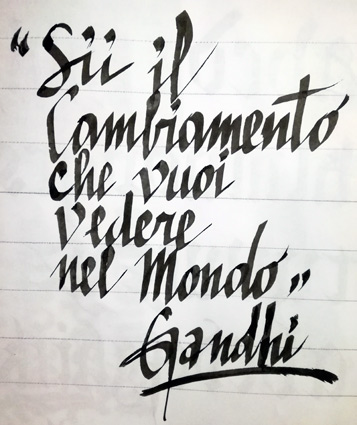 “Sii il
Cambiamento
che vuoi
vedere
nel Mondo”
Gandhi